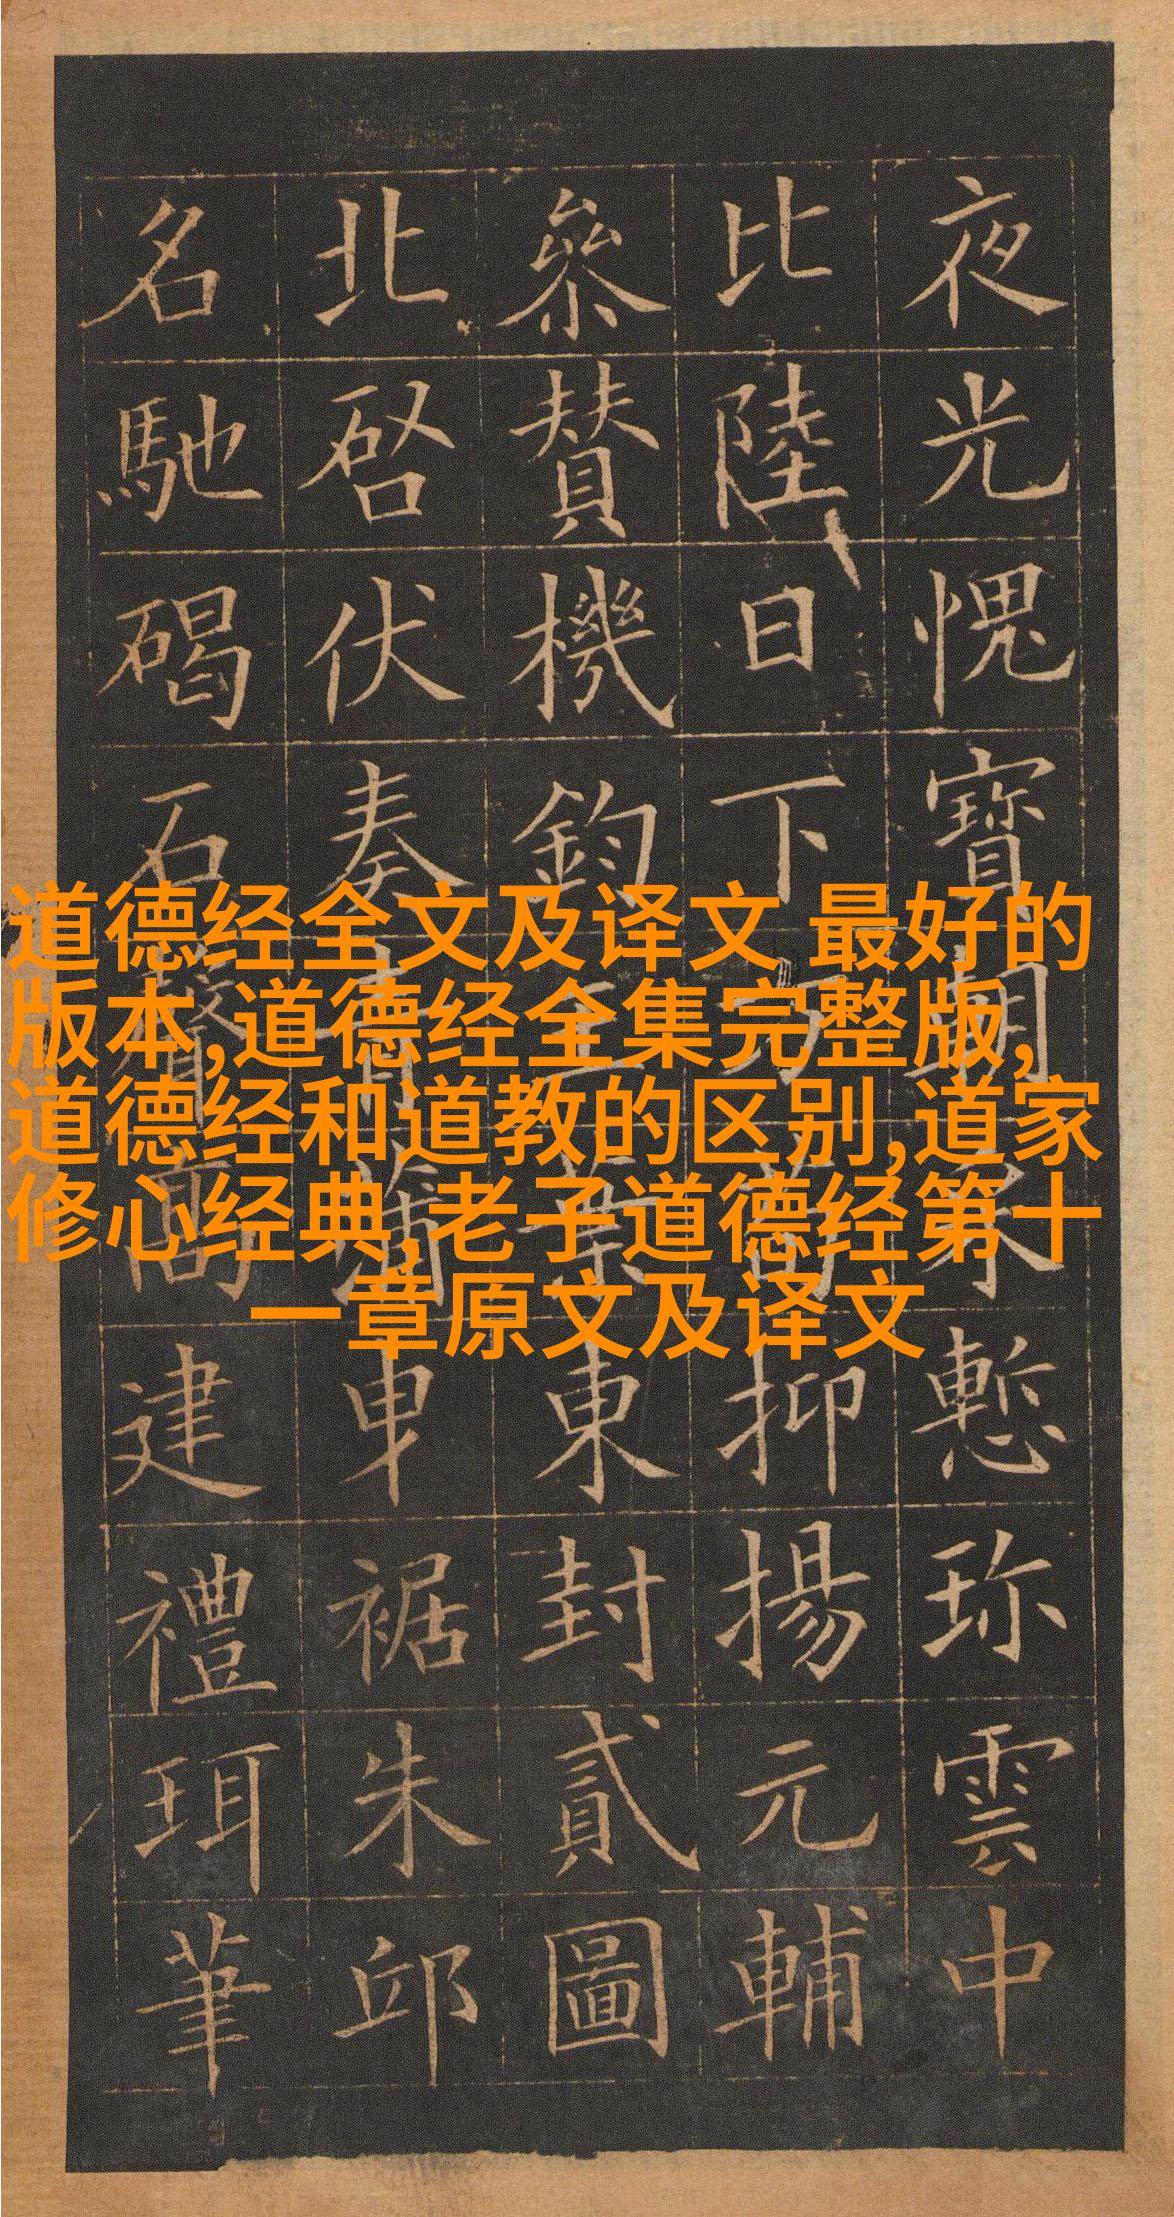 夜光愧寶朝慙珎雲中
比陸日下抑揚元輔
參賛機鈞東封貳圖
北啓伏奏青蒲曳裾朱邸
名馳碣石聲高建禮珥筆
道德经全文及译文 最好的
版本,道德经全集完整版,
道德经和道教的区别,道家
修心经典,老子道德经第十
一章原文及译文